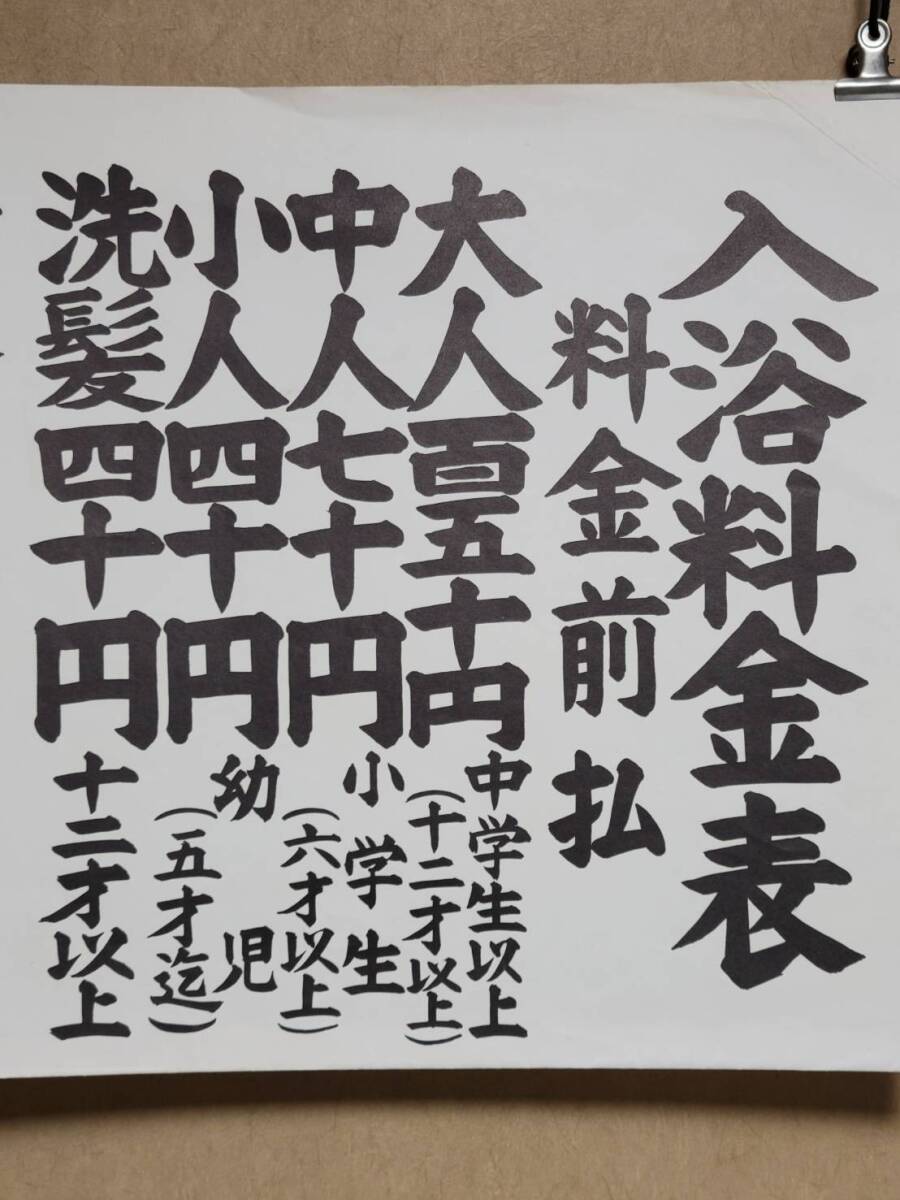 入浴料金表
料金前払
大人百五十円 中学生以上
(十二才以上)
中人七十円 小学生
(六才以上)
小人四十円 幼児
(五才迄)
洗髪四十円 十二才以上